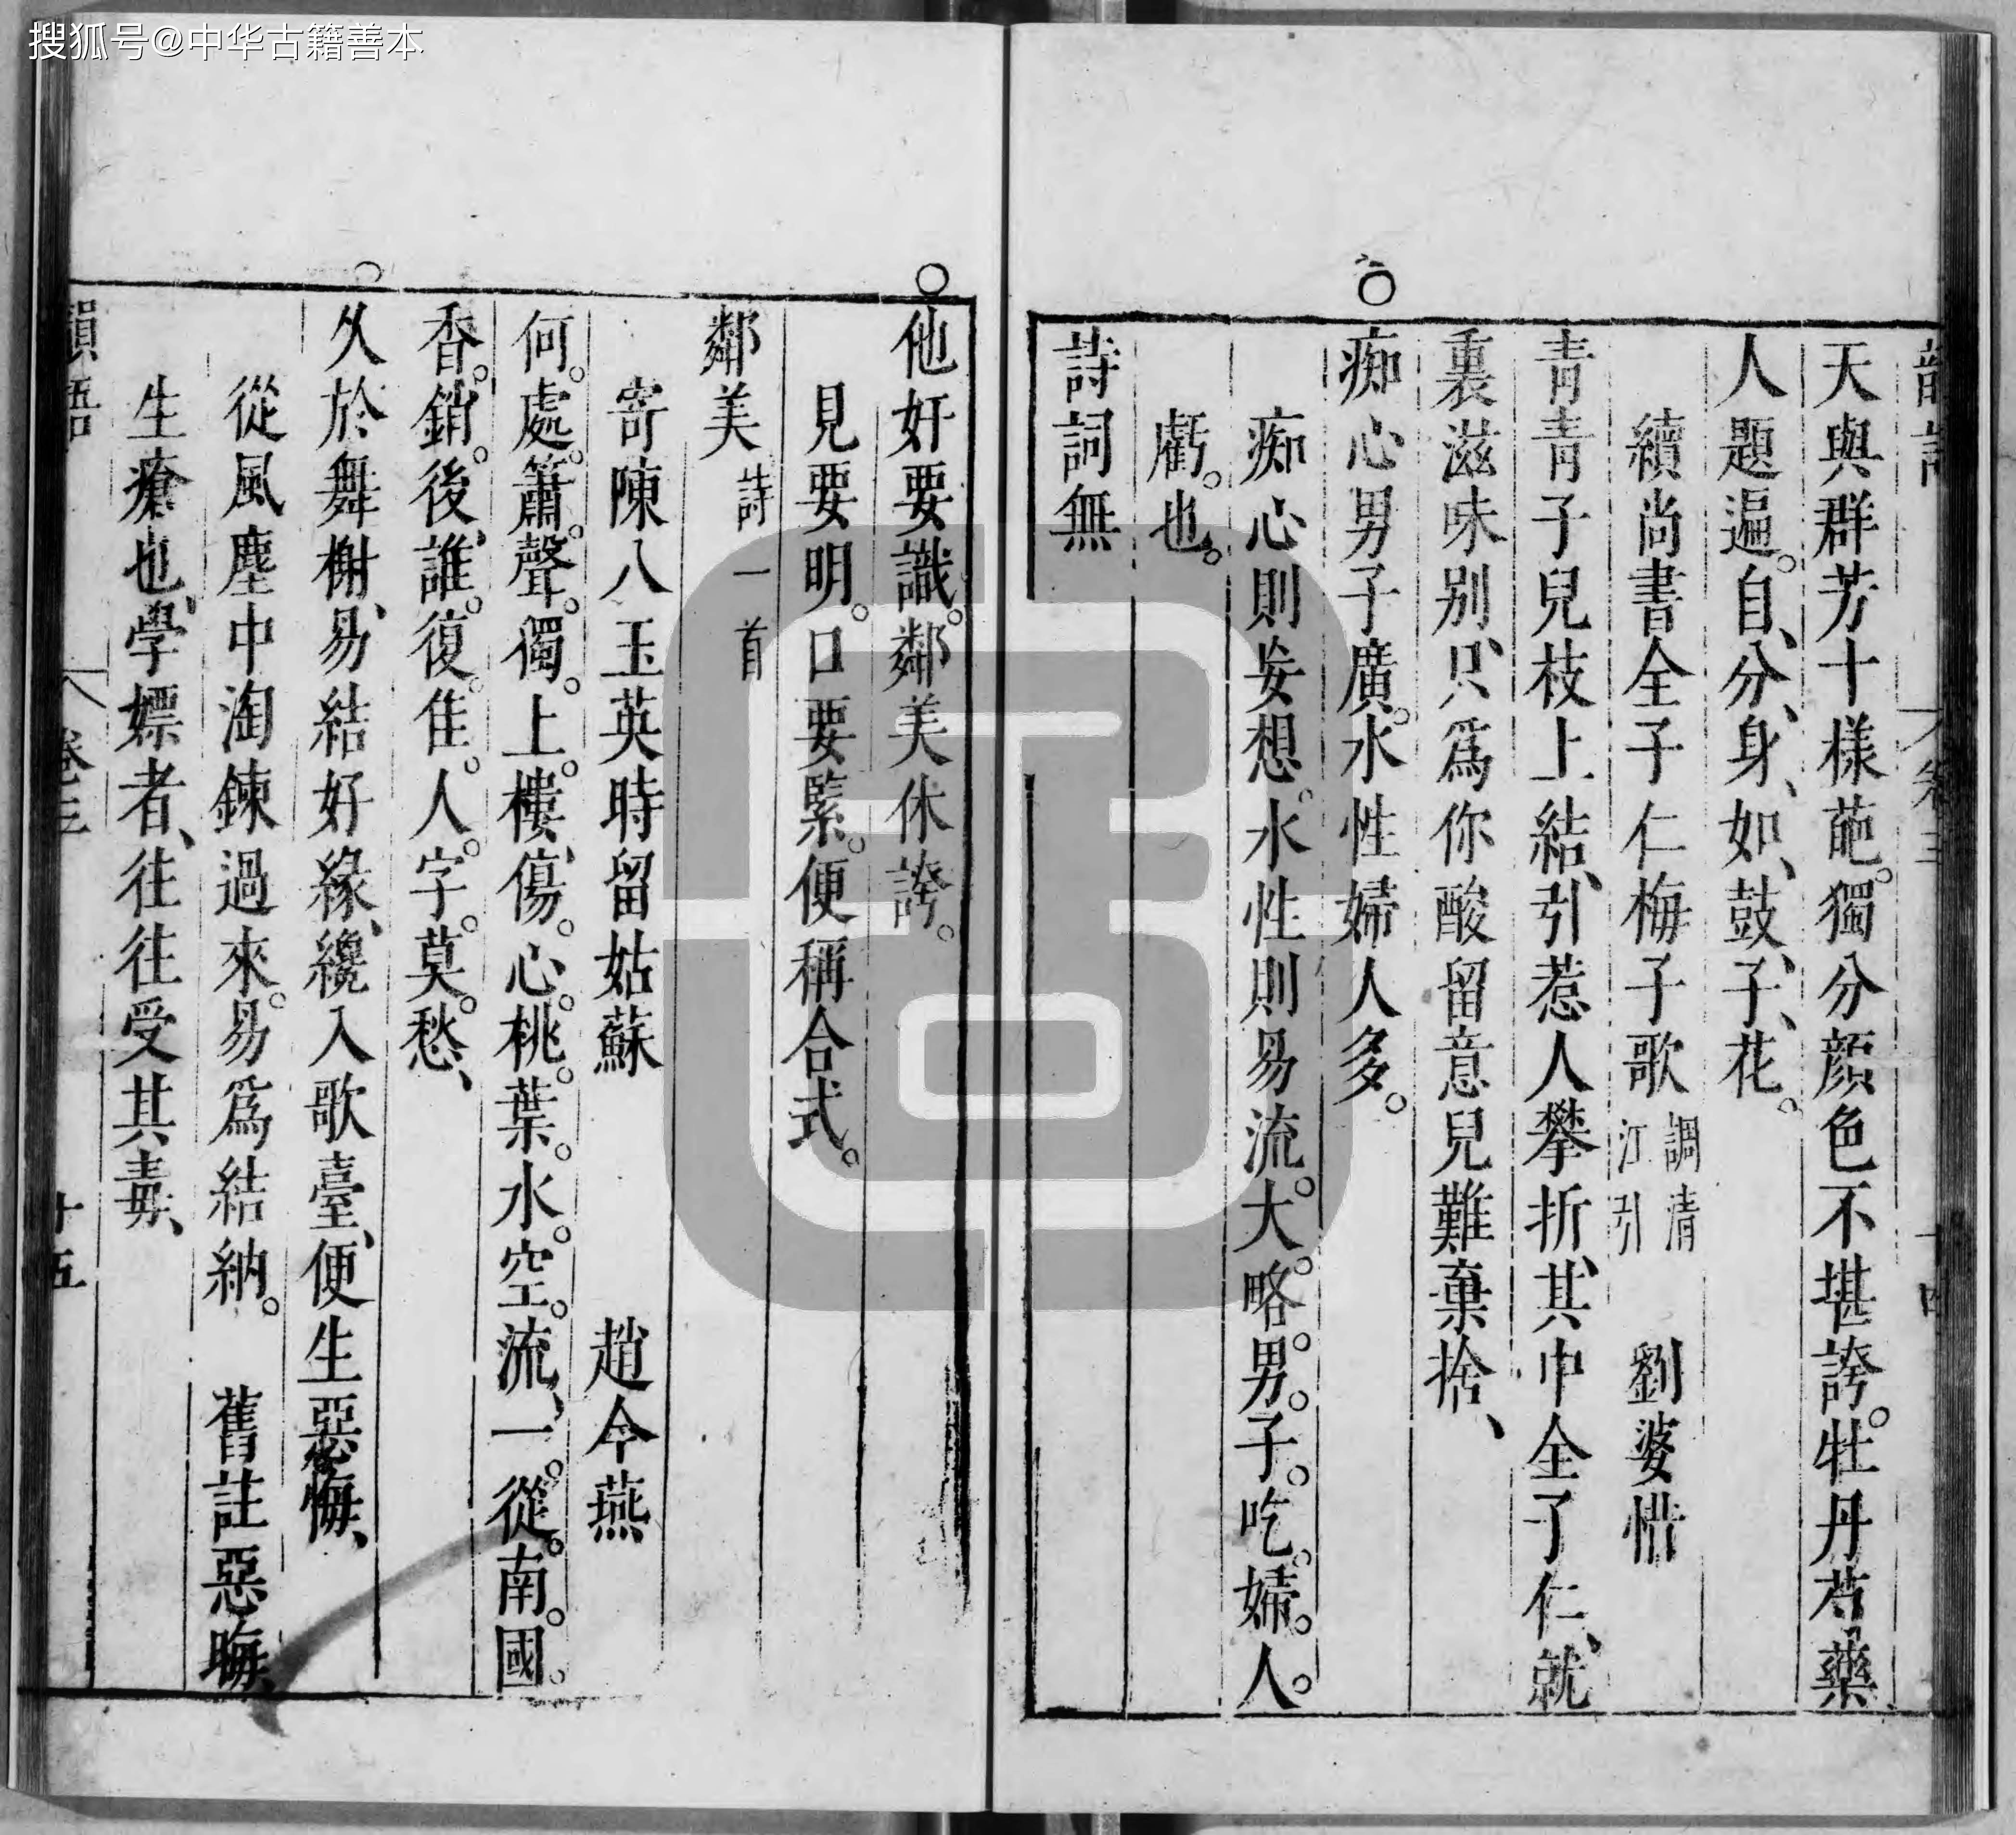 搜狐号@中华古籍善本
天與群芳十樣葩。獨分顔色不堪誇。牡丹芍藥
人題遍。自、分、身、如、鼓、子、花。
續尚書全子仁梅子歌 調清江引 劉婆惜
青青子兒枝上結、引惹人攀折、其中全子仁、就
裏滋味别、只爲你酸留意兒難棄捨、
○痴心男子廣。水性婦人多。
痴心則妄想。水性則易流。大。略。男。子。吃。婦。人。
虧。也。
詩詞無
○他奸要識。鄰美休誇。
見要明。口要緊。便稱合式。
鄰美 詩一首
寄陳八玉英時留姑蘇 趙今燕
何。處。簫。聲。獨。上。樓、傷。心。桃。葉。水。空。流、一。從。南。國。
香。銷。後、誰。復。隹。人。字。莫。愁、
○久於舞榭、易結好緣、纔入歌臺、便生惡悔、
從風塵中淘鍊過來。易爲結納。 舊註惡晦、
生瘡也、學嫖者、往往受其毒、
卷三
十五